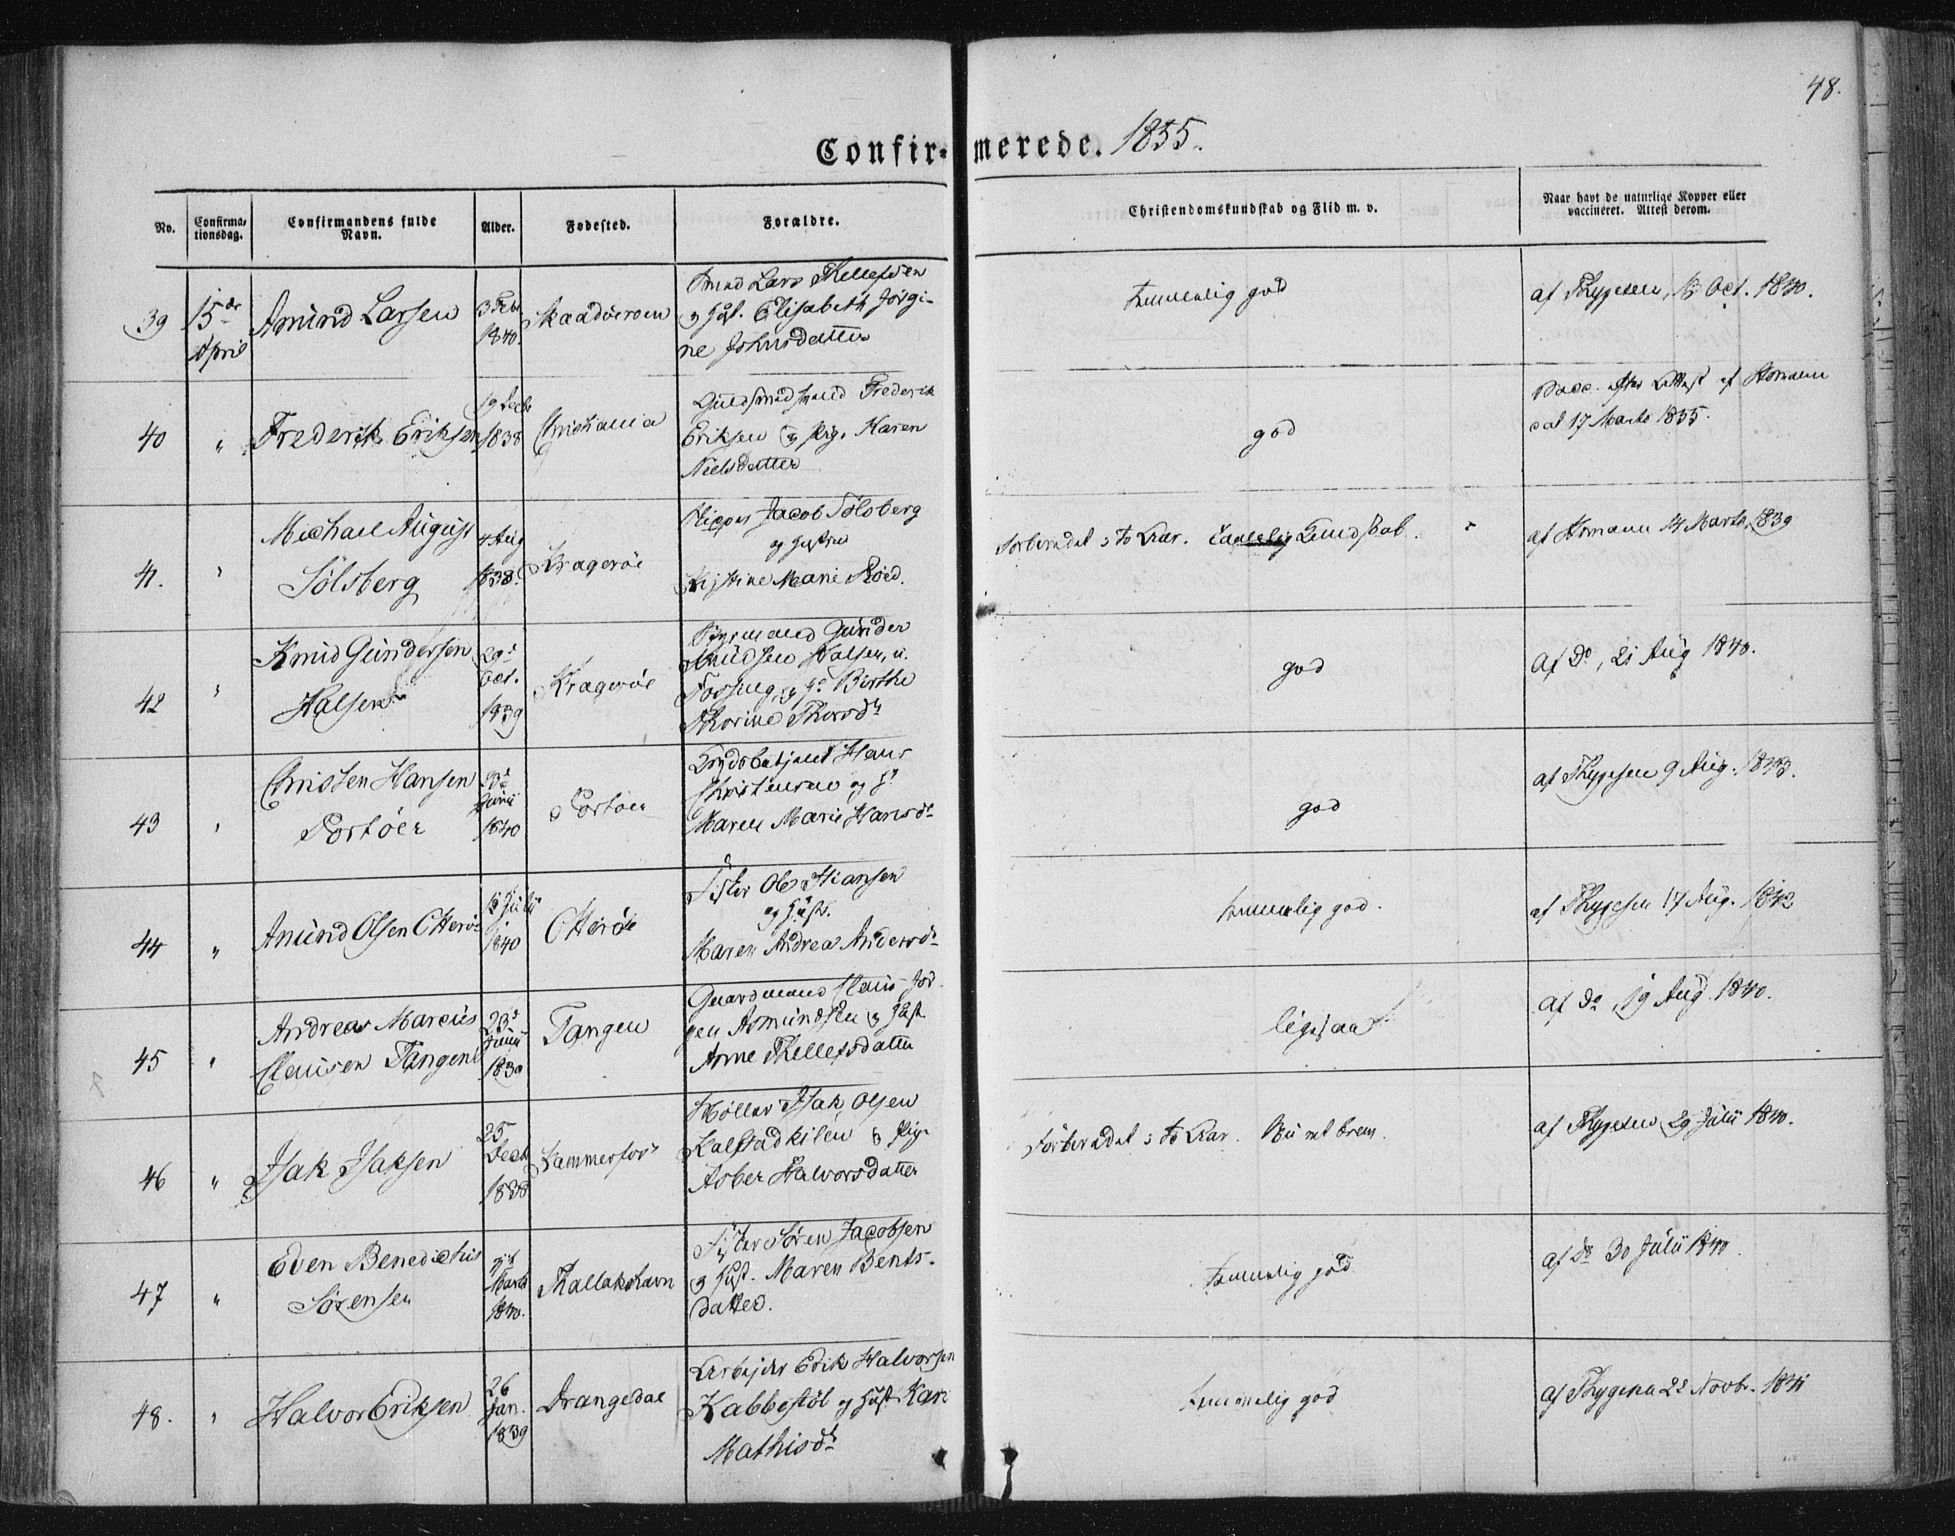 48.
Confirmerede. 1855.
No.
Confirmationsdag.
Confirmandens fulde Navn.
Alder.
Fødested.
Forældre.
Christendomskundskab og Flid m. v.
Naar havt de naturlige Kopper eller vaccineret. Attest derom.
39
15de April
Amund Larsen
3 Febr 1840.
Skaadøeroen
Lars Thellefsen
og Hust. Elisabeth Jørgi-
ne Johnsdatter
temmelig god
af Thygesen, 13 Oct. 1840.
40
"
Frederik Eriksen
19 Decbr 1838
Christiania
Guldsmedsvend Frederik
Eriksen og Pig. Karen
Nielsdatter
god
Vacc. efter Attest af Homann
dat 17 Marts 1855.
41.
"
Michael August
Sølsberg
4 Aug 1838.
Kragerøe
Skipper Jacob Sølsberg
og Hustru
Kistine Marie Roed.
Forberedet i to Aar. Taalelig Kundskab.
af Homann 14 Marts 1839
42
"
Knud Gundersen
Halsen
29de Oct. 1839
Kragerøe
Byemand Gunder
Knudsen Halsen, u.
og Ho Birthe
Thorine Thorsdtr
god
af Do, 21 Aug 1840.
43
"
Christen Hansen
Portøer
3de Junii 1840
Portøer
Hans
Christensen og Ho
Maren Marie Hansdtr
god
af Thygesen 9 Aug. 1843.
44
"
Amund Olsen Otterøe
13 Julii 1840
Otterøe
Fisker Ole Hansen
og Hust.
Maren Andrea Andersdtr
temmelig god.
af Thygesen 17 Aug. 1842
45
"
Andreas Marcus
Clausen Tangen
23de Junii 1839
Tangen
Gaardmand Claus Jør-
gen Asmundsen og Hust
Anne Thellefsdatter
ligesaa
af Do, 19 Aug. 1840.
46
"
Isak Isaksen
25 Decbr 1838
Kammerfos
Møller Isak Olsen
Kalstadkilen og Pig.
Asber Halvorsdatter
Forberedet i to Aar.
af Thygesen 29 Julii 1840.
47
"
Even Benedictus
Sørensen
Marts 1840.
Thallakshavn
Fisker Søren Jacobsen
og Hust. Maren Bents-
datter.
temmelig god
af Do 30 Julii 1840.
48.
"
Halvor Eriksen
26 Jan. 1839
Drangedal
Arbejder Erik Halvorsen
Kabbestøl og Hust Kari
Mathisdtr
temmelig god
af Thygesen 22 Novbr. 1841